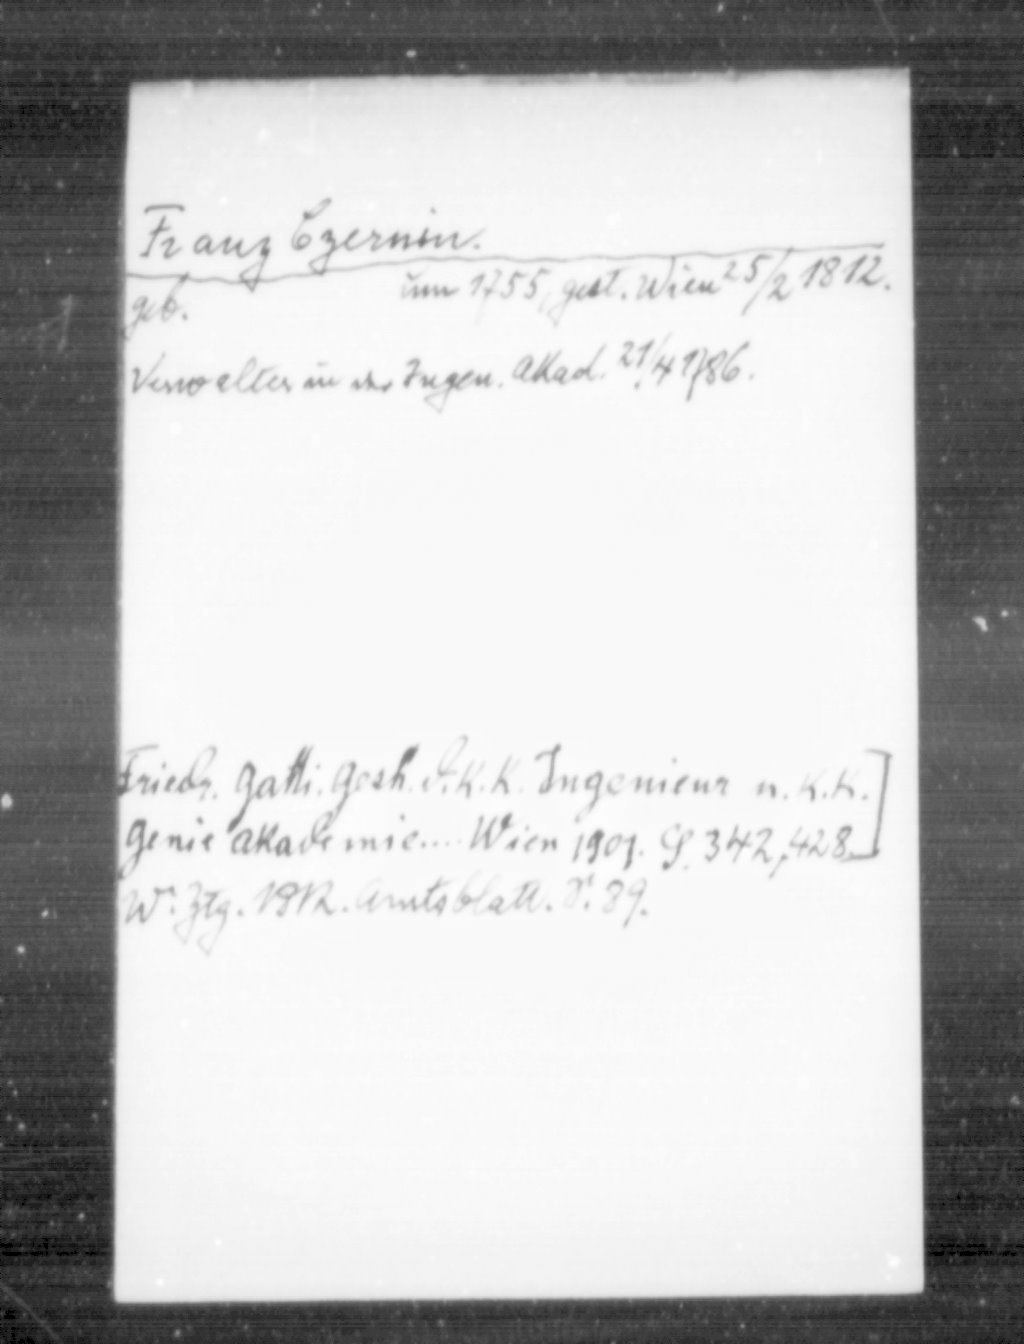 Franz Czernin.
geb. um 1755, gest. Wien 25/2 1812.
Verwalter in der Ingen. Akad. 21/4 1786.
Friedr. Gatti. Gesch. d. K. K. Ingenieur u. K. K.
Genie Akademie.... Wien 1901. S. 342, 428]
Wr. Ztg. 1812. Amtsblatt. S. 89.